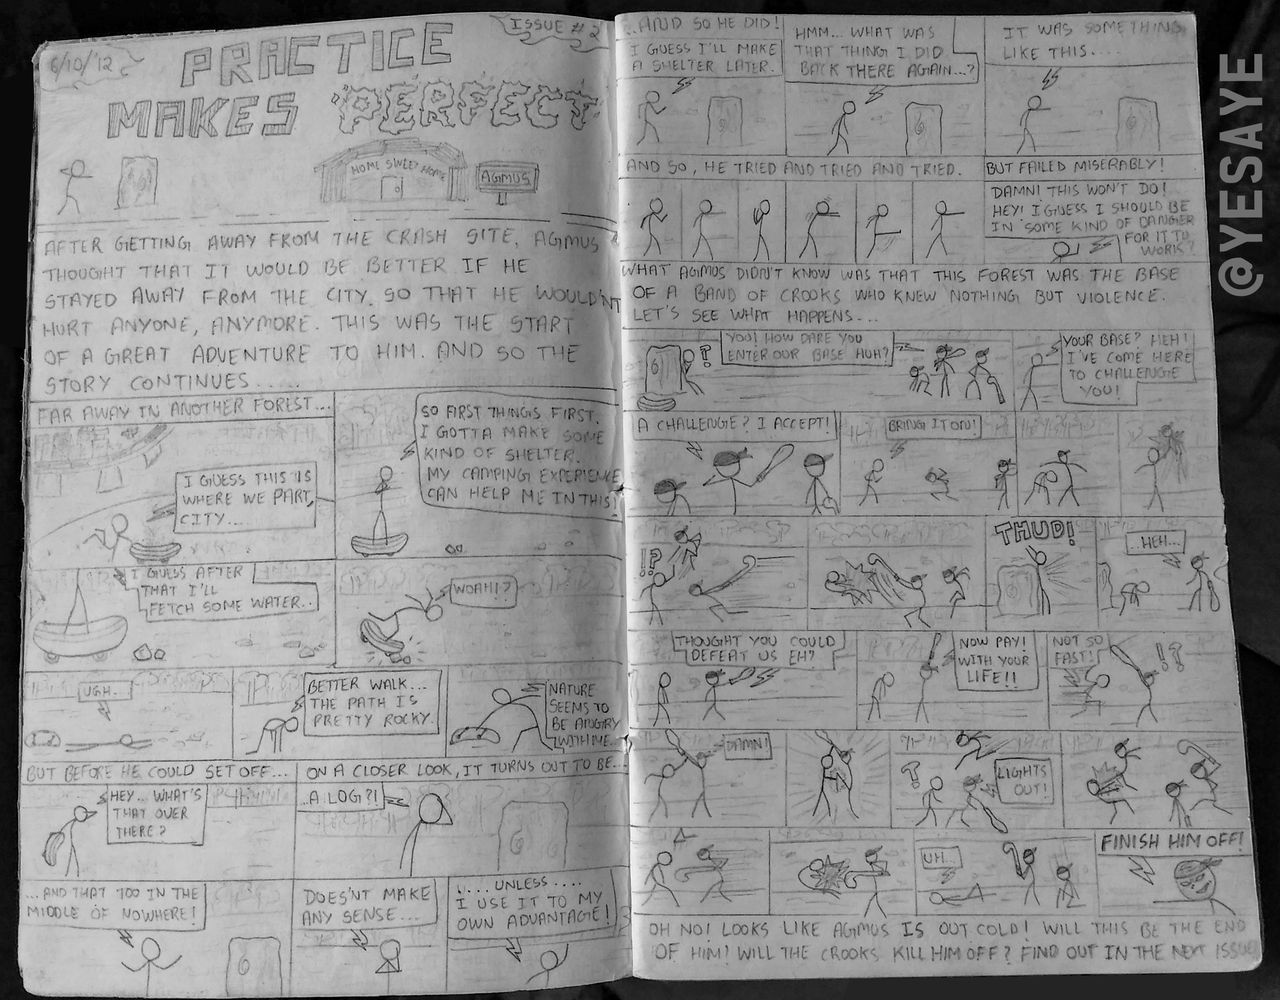 6/10/'12
ISSUE #2
PRACTICE
MAKES PERFECT
HOME SWEET HOME
AGMUS
AFTER GETTING AWAY FROM THE CRASH SITE, AGMUS
THOUGHT THAT IT WOULD BE BETTER IF HE
STAYED AWAY FROM THE CITY, SO THAT HE WOULDN'T
HURT ANYONE, ANYMORE. THIS WAS THE START
OF A GREAT ADVENTURE TO HIM. AND SO THE
STORY CONTINUES.....
FAR AWAY IN ANOTHER FOREST...
I GUESS THIS IS
WHERE WE PART,
CITY...
SO FIRST THINGS FIRST.
I GOTTA MAKE SOME
KIND OF SHELTER.
MY CAMPING EXPERIENCE
CAN HELP ME IN THIS!
I GUESS AFTER
THAT I'LL
FETCH SOME WATER..
WOAH!?
UGH.
BETTER WALK...
THE PATH IS
PRETTY ROCKY.
NATURE
SEEMS TO
BE ANGRY
WITH ME..
BUT BEFORE HE COULD SET OFF...
HEY... WHAT'S
THAT OVER
THERE?
ON A CLOSER LOOK, IT TURNS OUT TO BE...
..A LOG?!
...AND THAT TOO IN THE
MIDDLE OF NOWHERE!
DOES'NT MAKE
ANY SENSE...
U... UNLESS....
I USE IT TO MY
OWN ADVANTAGE!
..AND SO HE DID!
I GUESS I'LL MAKE
A SHELTER LATER.
HMM... WHAT WAS
THAT THING I DID
BACK THERE AGAIN...?
IT WAS SOMETHING
LIKE THIS....
AND SO, HE TRIED AND TRIED AND TRIED.
BUT FAILED MISERABLY!
DAMN! THIS WON'T DO!
HEY! I GUESS I SHOULD BE
IN SOME KIND OF DANGER
FOR IT TO
WORK?
WHAT AGMUS DIDN'T KNOW WAS THAT THIS FOREST WAS THE BASE
OF A BAND OF CROOKS WHO KNEW NOTHING BUT VIOLENCE.
LET'S SEE WHAT HAPPENS...
?
YOO! HOW DARE YOU
ENTER OUR BASE HUH?
YOUR BASE? HEH!
I'VE COME HERE
TO CHALLENGE
YOU!
A CHALLENGE? I ACCEPT!
BRING IT ON!
!?
THUD!
...HEH...
THOUGHT YOU COULD
DEFEAT US EH?
NOW PAY!
WITH YOUR
LIFE!!
NOT SO
FAST!
!?
DAMN!
?
LIGHTS
OUT!
UH...
FINISH HIM OFF!
OH NO! LOOKS LIKE AGMUS IS OUT COLD! WILL THIS BE THE END
OF HIM? WILL THE CROOKS KILL HIM OFF? FIND OUT IN THE NEXT ISSUE
@YESAYE